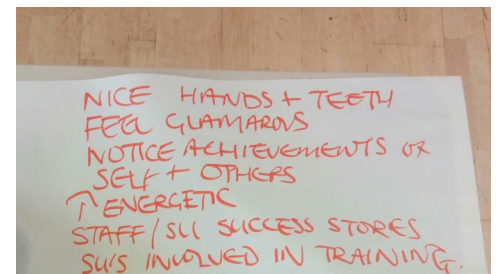 NICE HANDS + TEETH
FEEL GLAMAROUS
NOTICE ACHIEVEMENTS OF
SELF + OTHERS
↑ ENERGETIC
STAFF/SU SUCCESS STORES
SU'S INVOLVED IN TRAINING.